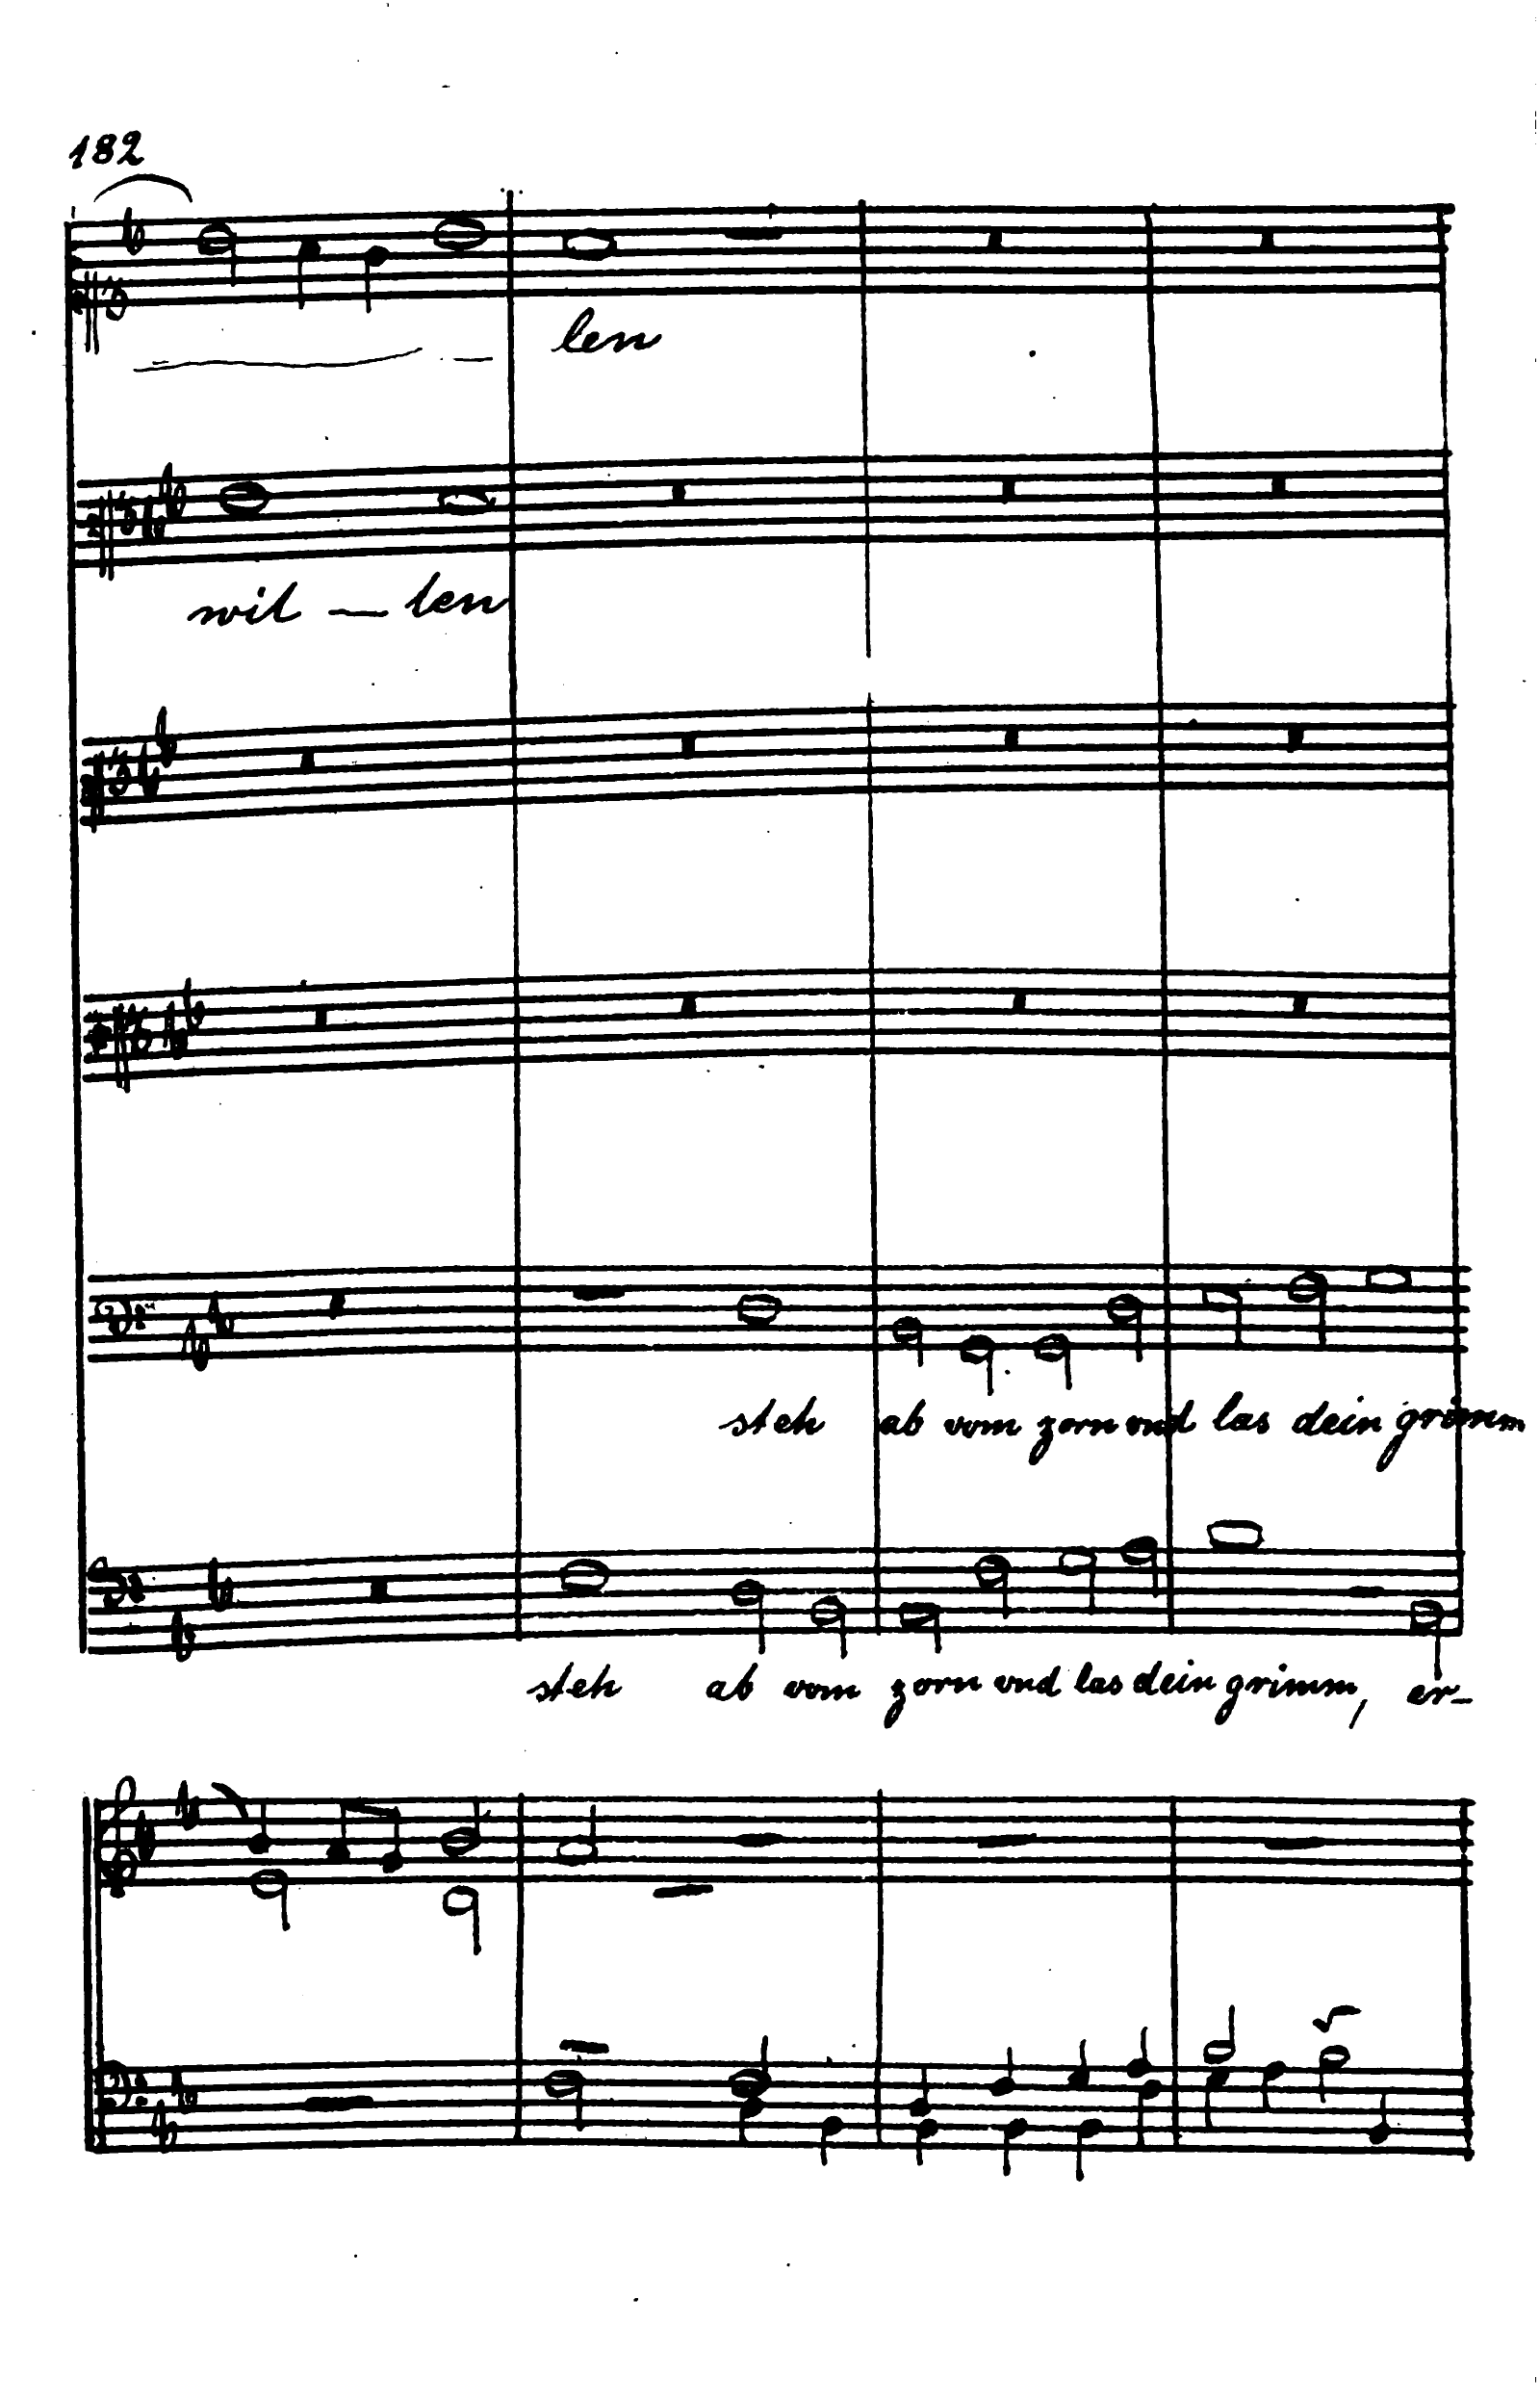 182
len
wil — len
steh ab vom zorn und las dein grimm
steh ab vom zorn und las dein grimm, er-